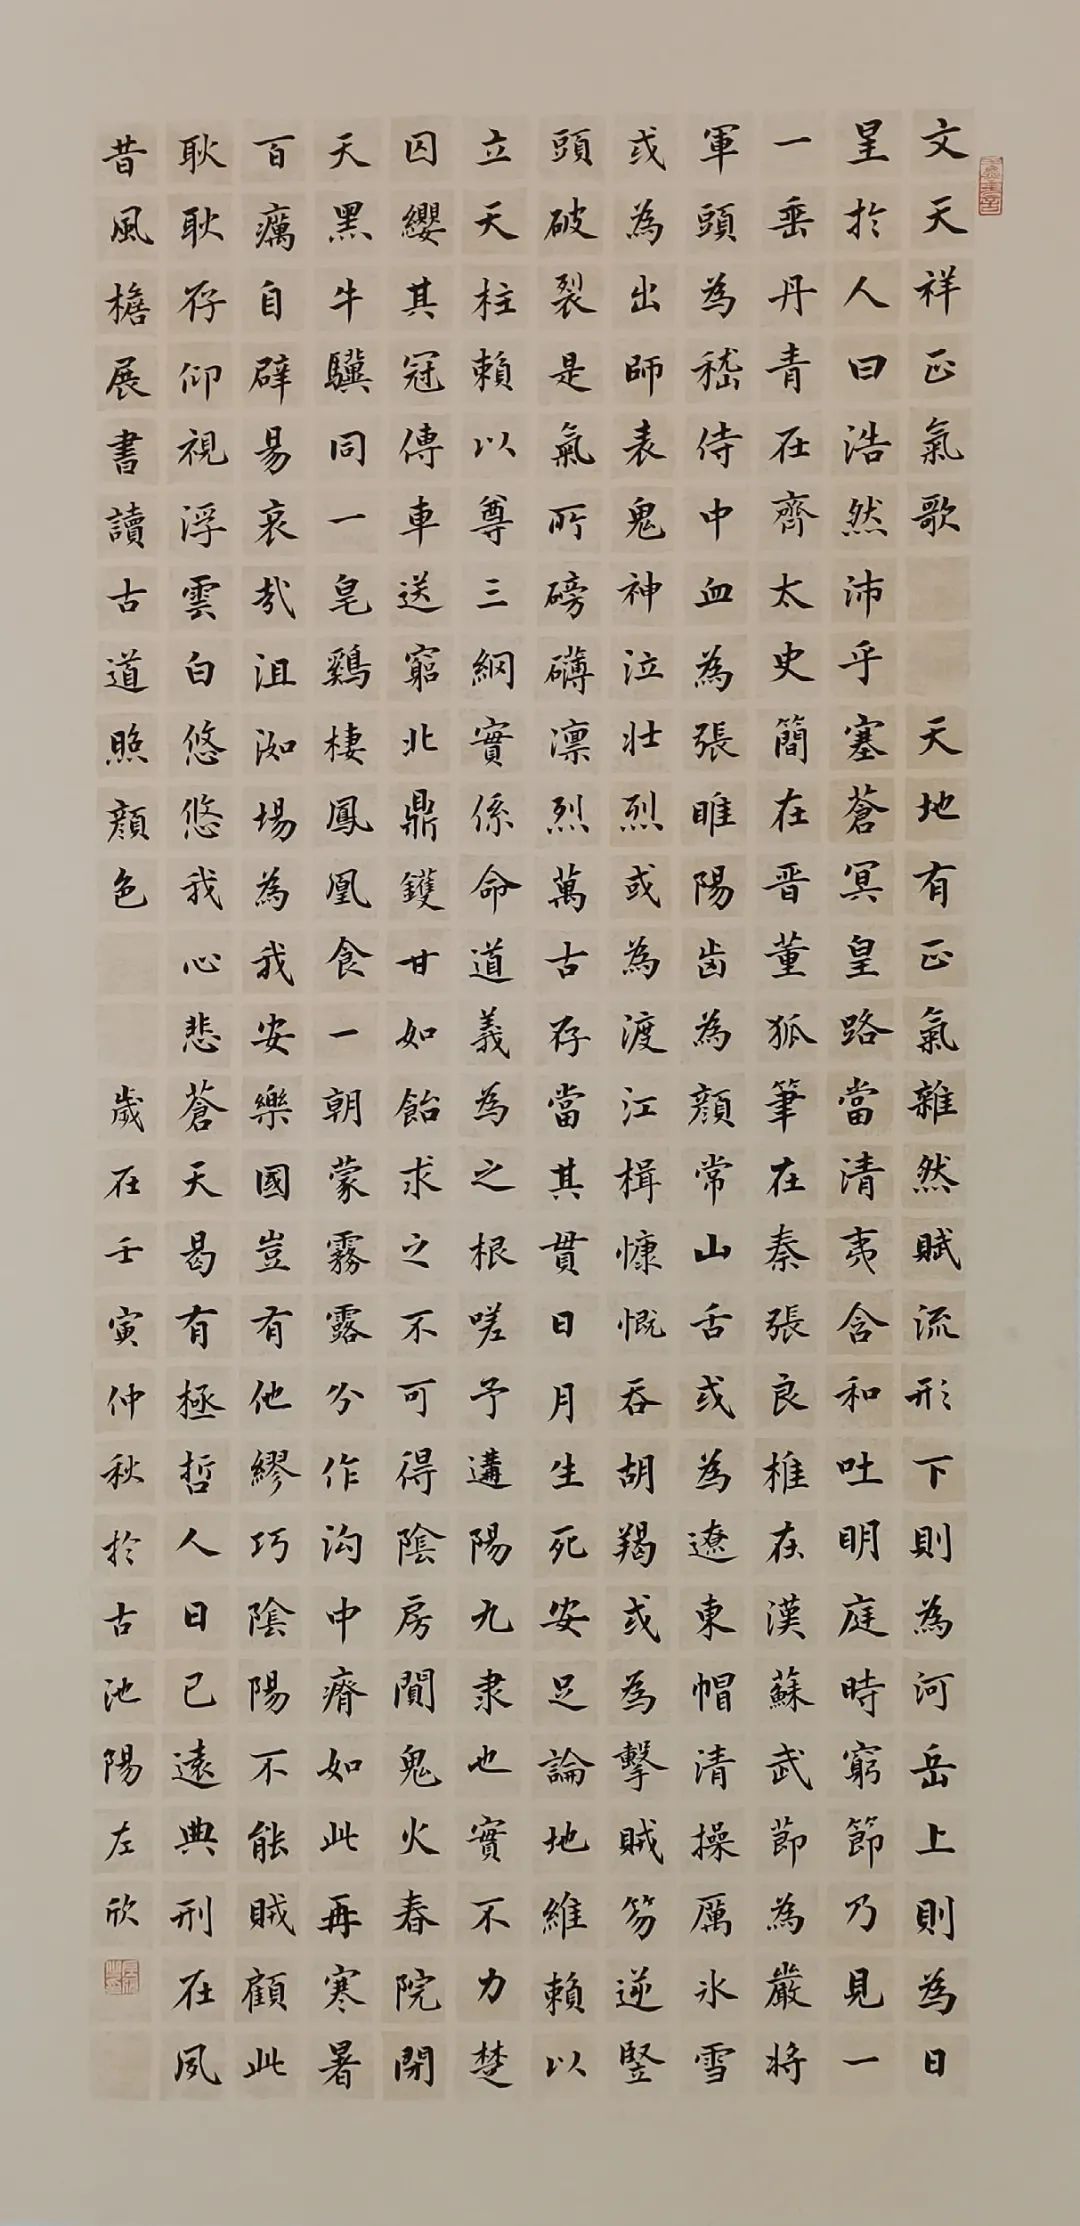 文天祥正氣歌 天地有正氣雜然賦流形下則為河岳上則為日
呈於人曰浩然沛乎塞蒼冥皇路當清夷含和吐明庭時窮節乃見一
一垂丹青在齊太史簡在晋董狐筆在秦張良椎在漢蘇武節為嚴將
軍頭為嵇侍中血為張睢陽齒為顔常山舌或為遼東帽清操厲冰雪
或為出師表鬼神泣壯烈或為渡江楫慷慨吞胡羯或為擊賊笏逆豎
頭破裂是氣所磅礴凛烈萬古存當其貫日月生死安足論地維賴以
立天柱賴以尊三綱實係命道義為之根嗟予遘陽九隶也實不力楚
囚纓其冠傳車送窮北鼎鑊甘如飴求之不可得陰房闃鬼火春院閉
天黑牛驥同一皂鷄棲鳳凰食一朝蒙霧露分作沟中瘠如此再寒暑
百癘自辟易哀哉沮洳場為我安樂國豈有他繆巧陰陽不能賊顧此
耿耿存仰視浮雲白悠悠我心悲蒼天曷有極哲人日已遠典刑在夙
昔風檐展書讀古道照顔色 歲在壬寅仲秋於古池陽左欣